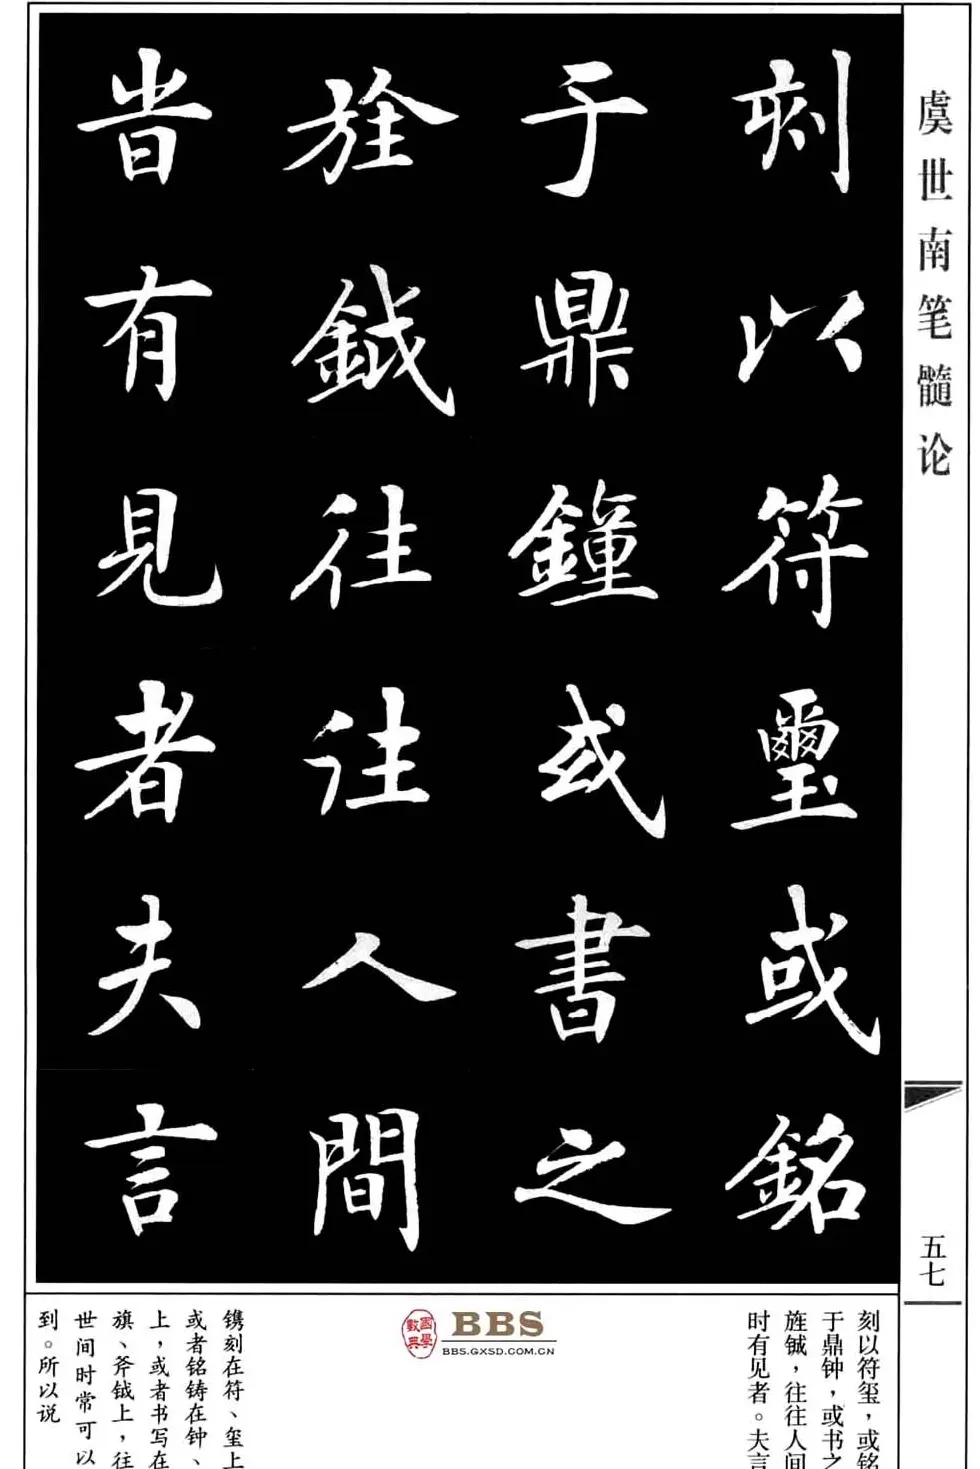 虞世南笔髓论
刻以符璽或銘
于鼎鐘或書之
旌鉞往往人間
旹有見者夫言
五七
刻以符玺，或铭
于鼎钟，或书之
旌铖，往往人间
时有见者。夫言
國學數典
BBS
BBS.GXSD.COM.CN
镌刻在符、玺上
或者铭铸在钟、
上，或者书写在
旗、斧钺上，往
世间时常可以
到。所以说